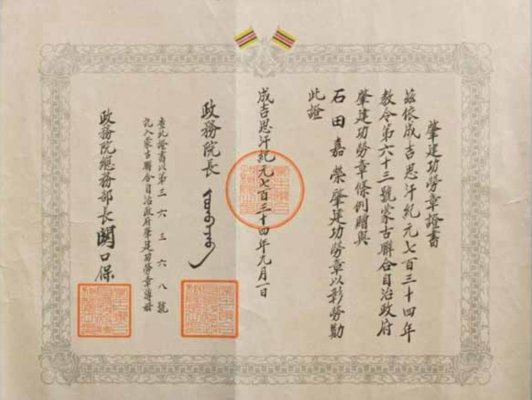 肇建功勞章證書
茲依成吉思汗紀元七百三十四年
教令第六十三號蒙古聯合自治政府
肇建功勞章條例贈與
石田嘉榮肇建功勞章以彰勞勩
此證
成吉思汗紀元七百三十四年九月一日
政務院長
查此證書以第三六三六八號
記入蒙古聯合自治政府肇建功勞章簿冊
政務院總務部長關口保